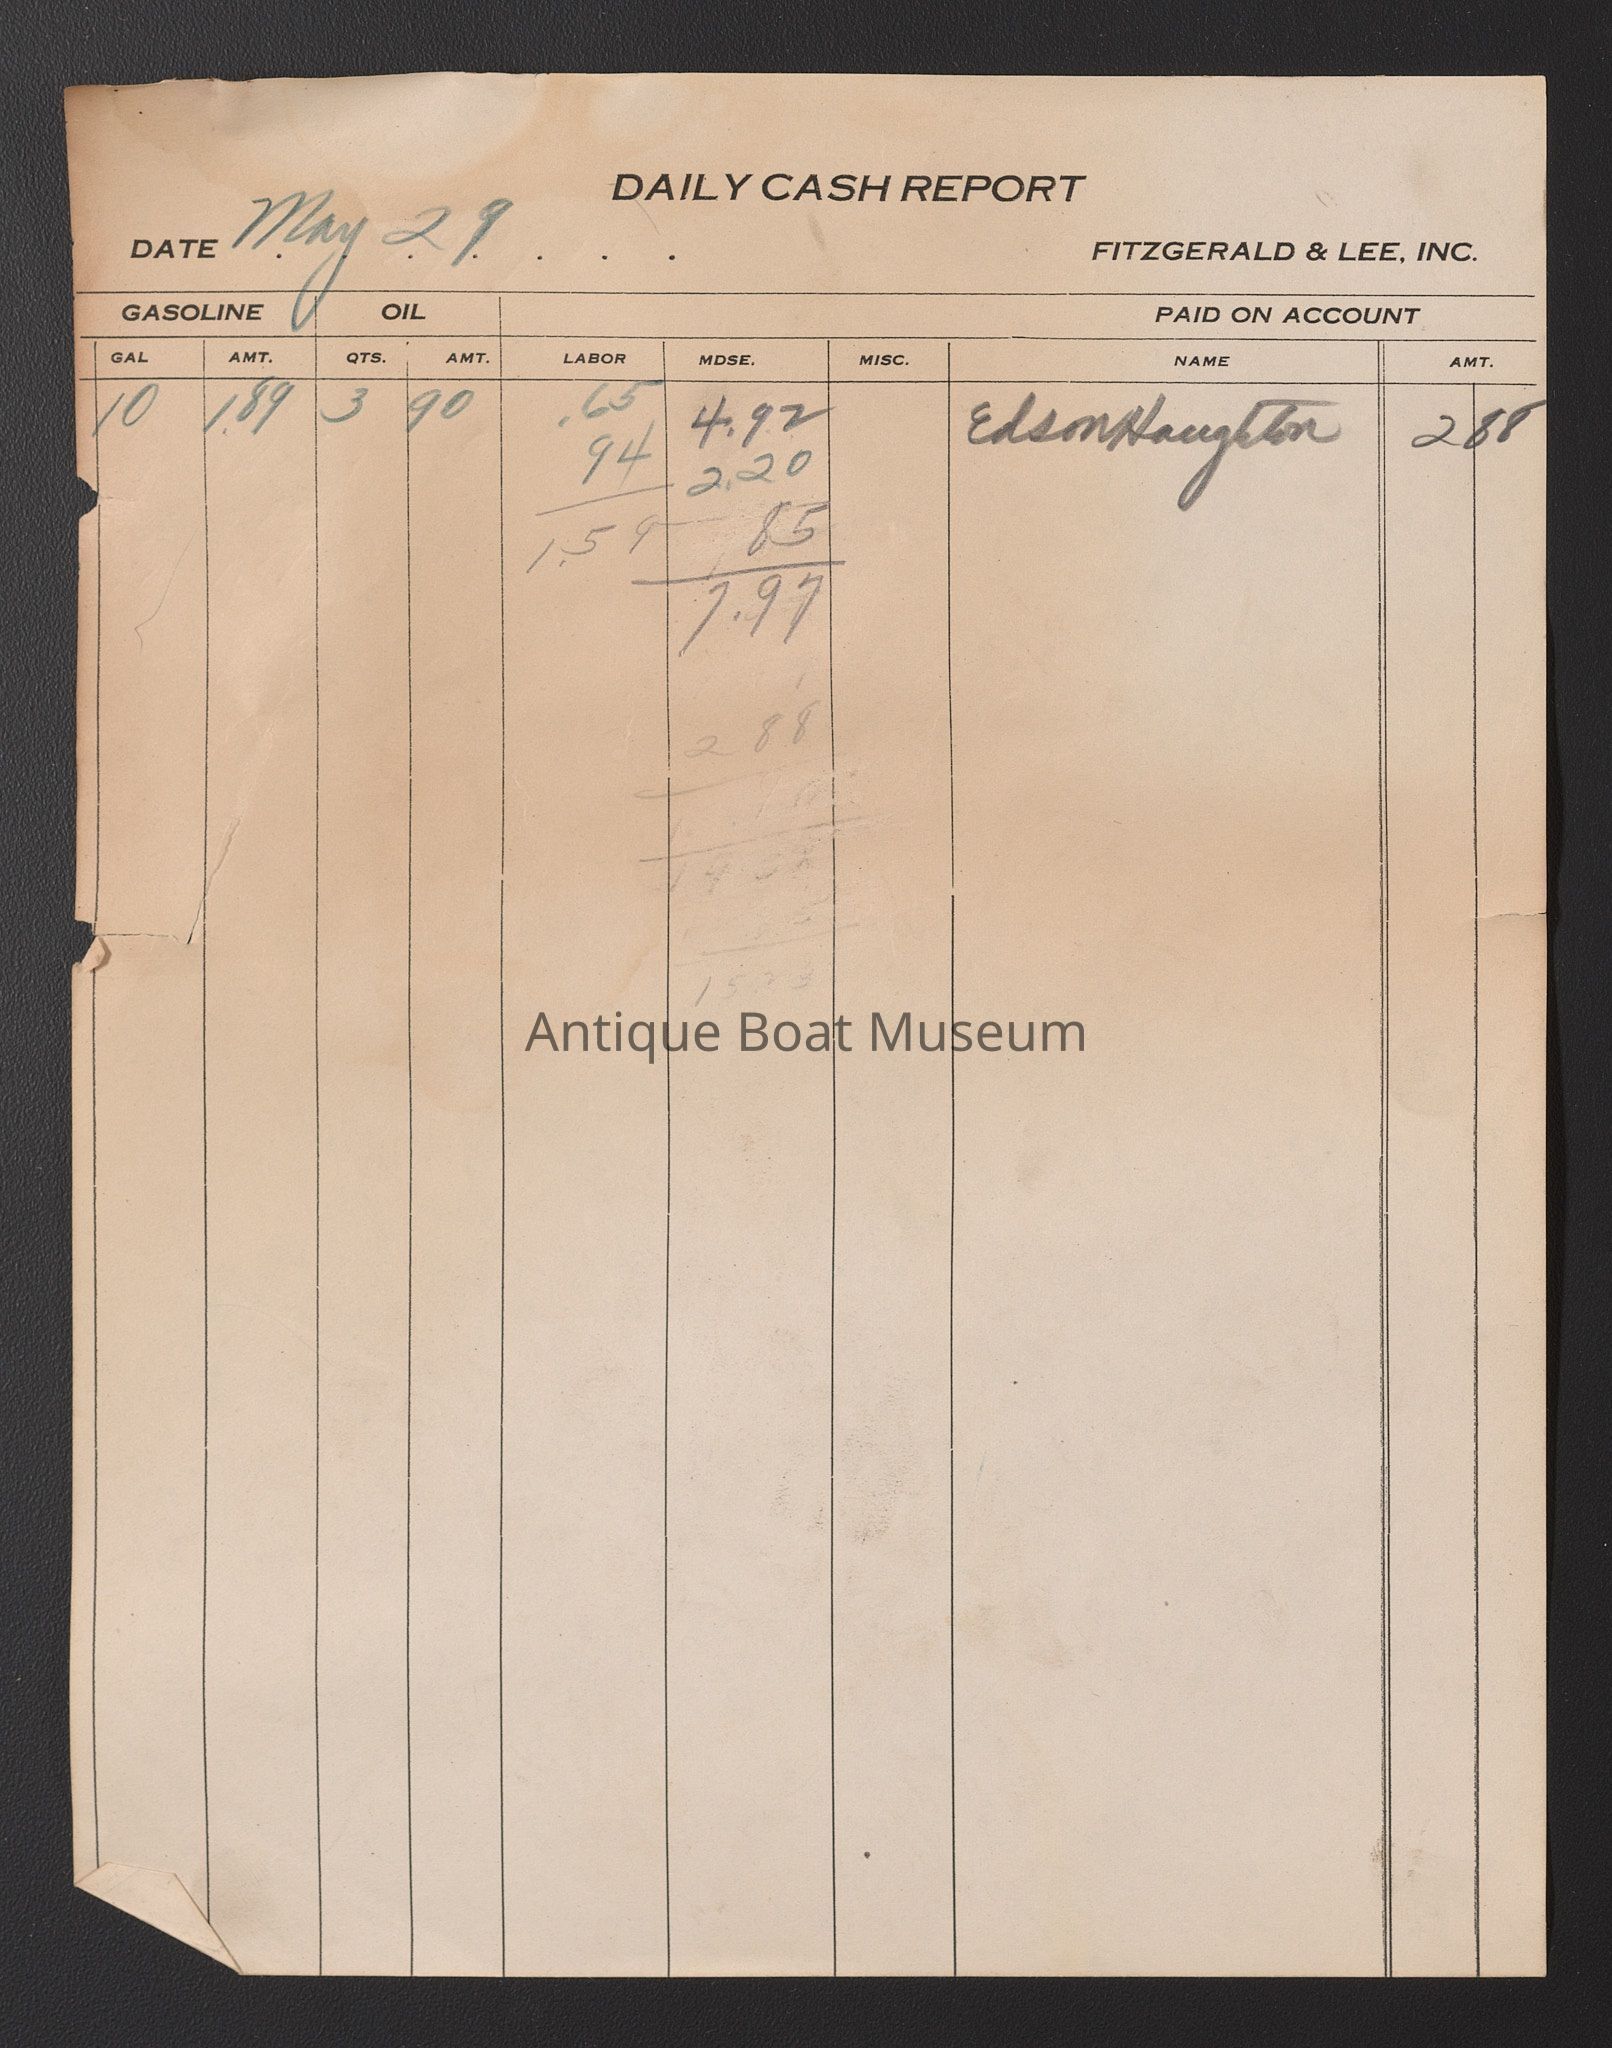 DAILY CASH REPORT
DATE May 29 . . . . . . . FITZGERALD & LEE, INC.
GASOLINE OIL PAID ON ACCOUNT
GAL AMT. QTS. AMT. LABOR MDSE. MISC. NAME AMT.
10 1.89 3 90 .65 4.92 Edson Haughton 2 88
94 2.20
1.59 85
7.97
2 88
15 23
Antique Boat Museum